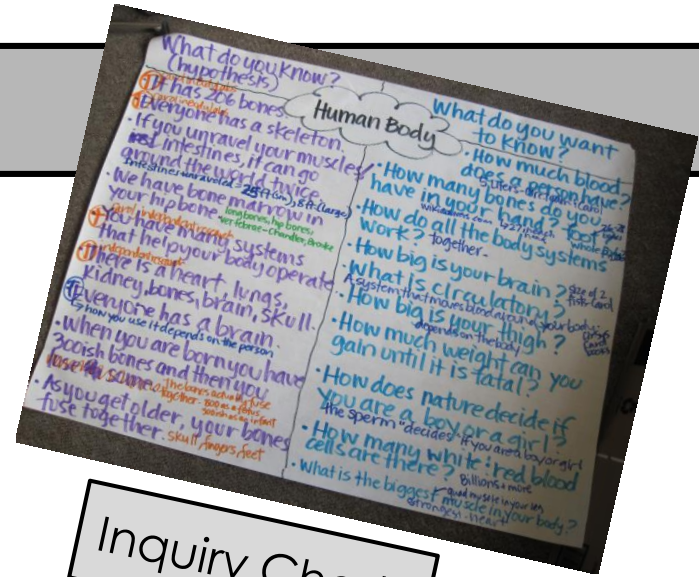 What do you know?
(hypothesis)
It has 206 bones
Everyone has a skeleton
If you unravel your muscles/
intestines, it can go
around the world twice
intestines unraveled = 25ft (sm), 5ft (large)
We have bone marrow in
your hip bone
long bones, hip bones,
vertebrae - Chandler, Brooke
You have many systems
that help your body operate
There is a heart, lungs,
kidney, bones, brain, skull.
Everyone has a brain.
how you use it depends on the person
When you are born you have
300ish bones and then you
The bones actually fuse
together
As you get older, your bones
fuse together. skull, fingers, feet
Human Body
What do you want
to know?
How much blood
does a person have?
How many bones do you
have in your hand? foot?
How do all the body systems
work? together.
How big is your brain?
What is circulatory?
A system that moves blood around your body.
How big is your thigh?
depends on the body
How much weight can you
gain until it is fatal?
How does nature decide if
you are a boy or a girl?
the sperm "decides" if you are a boy or girl
How many white:red blood
cells are there? Billions + more
What is the biggest muscle in your body?
strongest - heart
Inquiry